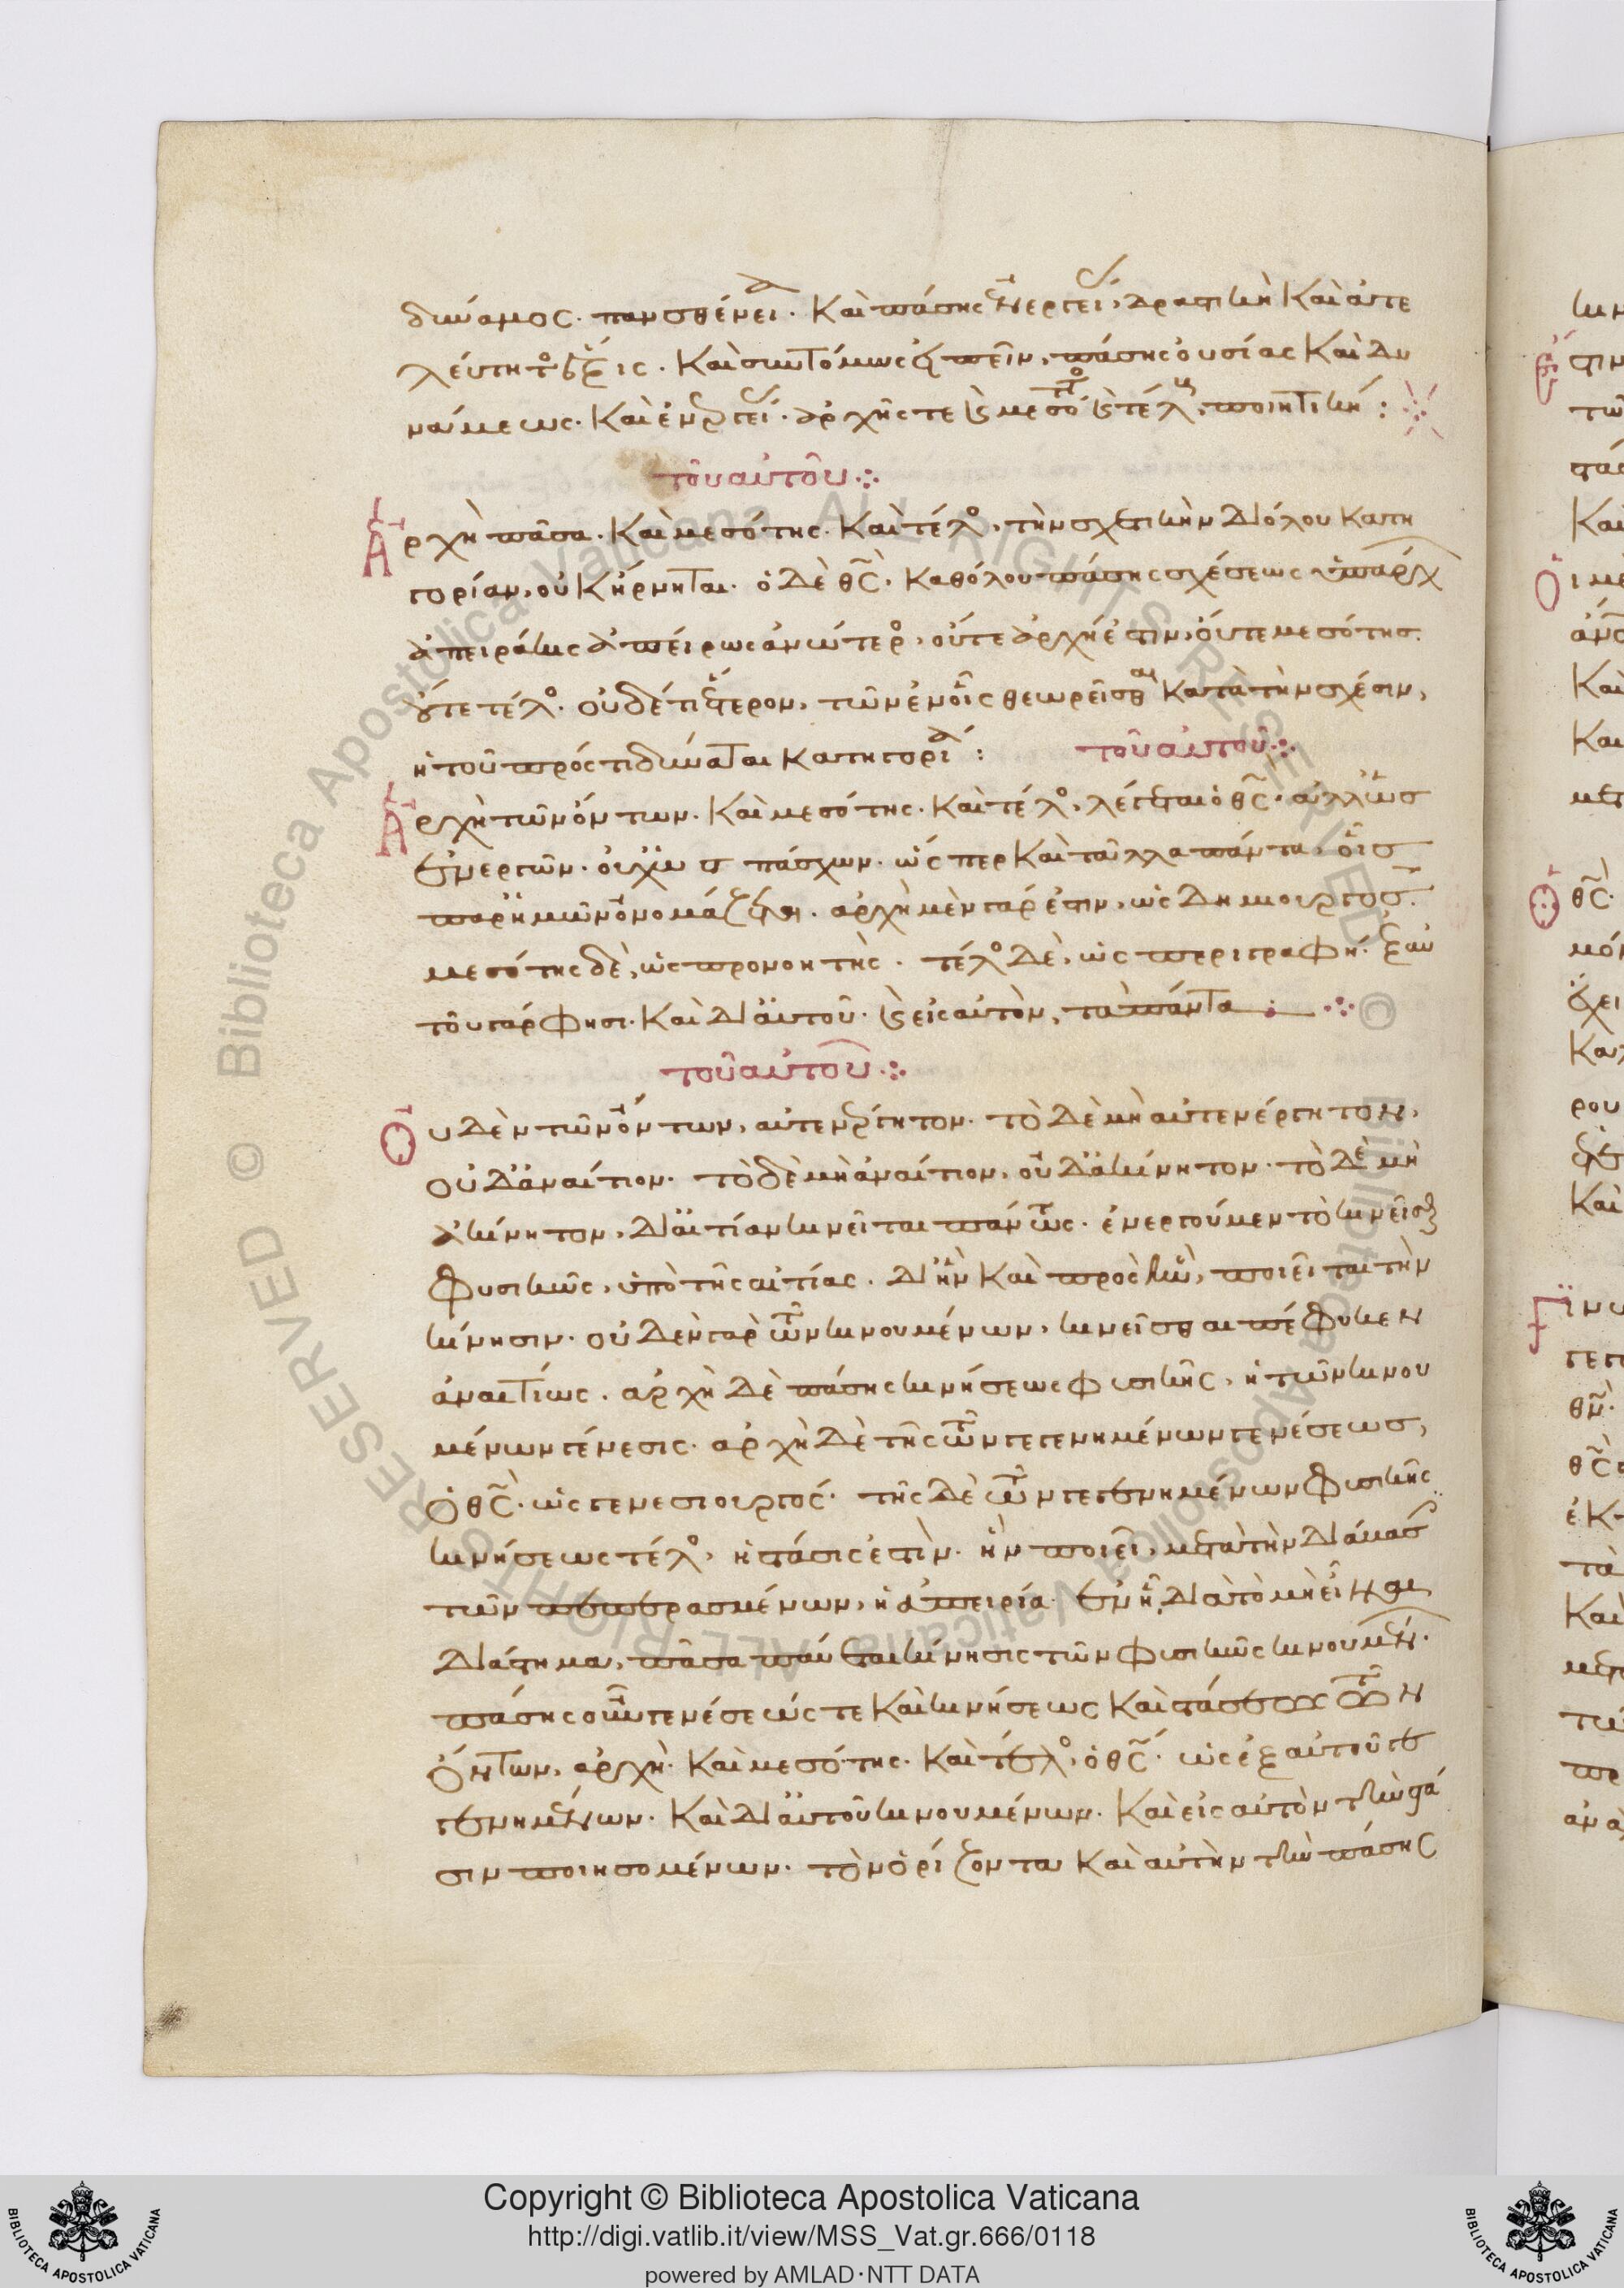 δύναμος. πανσθένεια. Καὶ πάσης ἐνεργείας, δραστικὴ καὶ ἀτε
λεύτητος ἕξις. Καὶ συντόμως εἰπεῖν, πάσης οὐσίας Καὶ δυ
νάμεως. Καὶ ἐνεργείας. ἀρχῆς τε καὶ μεσότητος καὶ τέλους, ποιητική:
τοῦ αὐτοῦ
Ἀρχὴ πᾶσα. Καὶ μεσότης. Καὶ τέλος, τὴν σχετικὴν διόλου κατη
γορίαν, οὐκ ἤρνηται. ὁ δὲ θς. καθόλου πάσης σχέσεως ὑπάρχ
ἀπειράκις ἀπείρως ἀνώτερος, οὔτε ἀρχή ἐστιν, οὔτε μεσότης.
οὔτε τέλος. οὐδέ τι ἕτερον, τῶν ἐν οἷς θεωρεῖσθαι κατὰ τὴν σχέσιν,
ἡ τοῦ πρός τι δύναται κατηγορία: τοῦ αὐτοῦ
Ἀρχὴ τῶν ὄντων. Καὶ μεσότης. Καὶ τέλος, λέγεται ὁ θς. ἀλλ' ὡς
ἐνεργῶν. οὐχ ὡς πάσχων. ὥσπερ Καὶ τἆλλα πάντα, οἷς
παρ' ἡμῶν ὀνομάζεται. ἀρχὴ μὲν γάρ ἐστιν, ὡς δημιουργός.
μεσότης δὲ, ὡς προνοητής. τέλος δὲ, ὡς περιγραφή. ἐξ αὐ
τοῦ γάρ φησι. Καὶ δι' αὐτοῦ. καὶ εἰς αὐτὸν, τὰ πάντα
τοῦ αὐτοῦ
Οὐδὲν τῶν ὄντων, αὐτενέργητον. τὸ δὲ μὴ αὐτενέργητον,
οὐδ' ἀναίτιον. τὸ δὲ μὴ ἀναίτιον, οὐδ' ἀκίνητον. τὸ δὲ μὴ
ἀκίνητον, δι' αἰτίαν κινεῖται πάντως. ἐνεργούμεν τὸ κινεῖσθαι
φυσικῶς, ὑπὸ τῆς αἰτίας. δι' ἣν καὶ πρὸς ἣν, ποιεῖται τὴν
κίνησιν. οὐδὲν γὰρ τῶν κινουμένων, κινεῖσθαι πέφυκεν
ἀναιτίως. ἀρχὴ δὲ πάσης κινήσεως φυσικῆς, ἡ τῶν κινου
μένων γένεσις. ἀρχὴ δὲ τῆς τῶν γεγενημένων γενέσεως,
ὁ θς. ὡς γενεσιουργός. τῆς δὲ τῶν γεγενημένων φυσικῆς
κινήσεως τέλος, ἡ στάσις ἐστίν. ἣν ποιεῖ, μετὰ τὴν διάβασιν
τῶν πεπερασμένων, ἡ ἀπειρία. ἐν ᾗ, διὰ τὸ μὴ εἶναι
διάστημα, πᾶσα παύεται κίνησις τῶν φυσικῶς κινουμένων.
πάσης οὖν γενέσεώς τε Καὶ κινήσεως Καὶ στάσεως τῶν
ὄντων, ἀρχὴ. Καὶ μεσότης. Καὶ τέλος, ὁ θς. ὡς ἐξ αὐτοῦ γε
γενημένων. Καὶ δι' αὐτοῦ κινουμένων. Καὶ εἰς αὐτὸν τὴν στά
σιν ποιησομένων. τὸν ὁρίζοντα Καὶ αὐτὴν τὴν πάσης
Copyright © Biblioteca Apostolica Vaticana
http://digi.vatlib.it/view/MSS_Vat.gr.666/0118
powered by AMLAD·NTT DATA
BIBLIOTECA APOSTOLICA VATICANA
BIBLIOTECA APOSTOLICA VATICANA